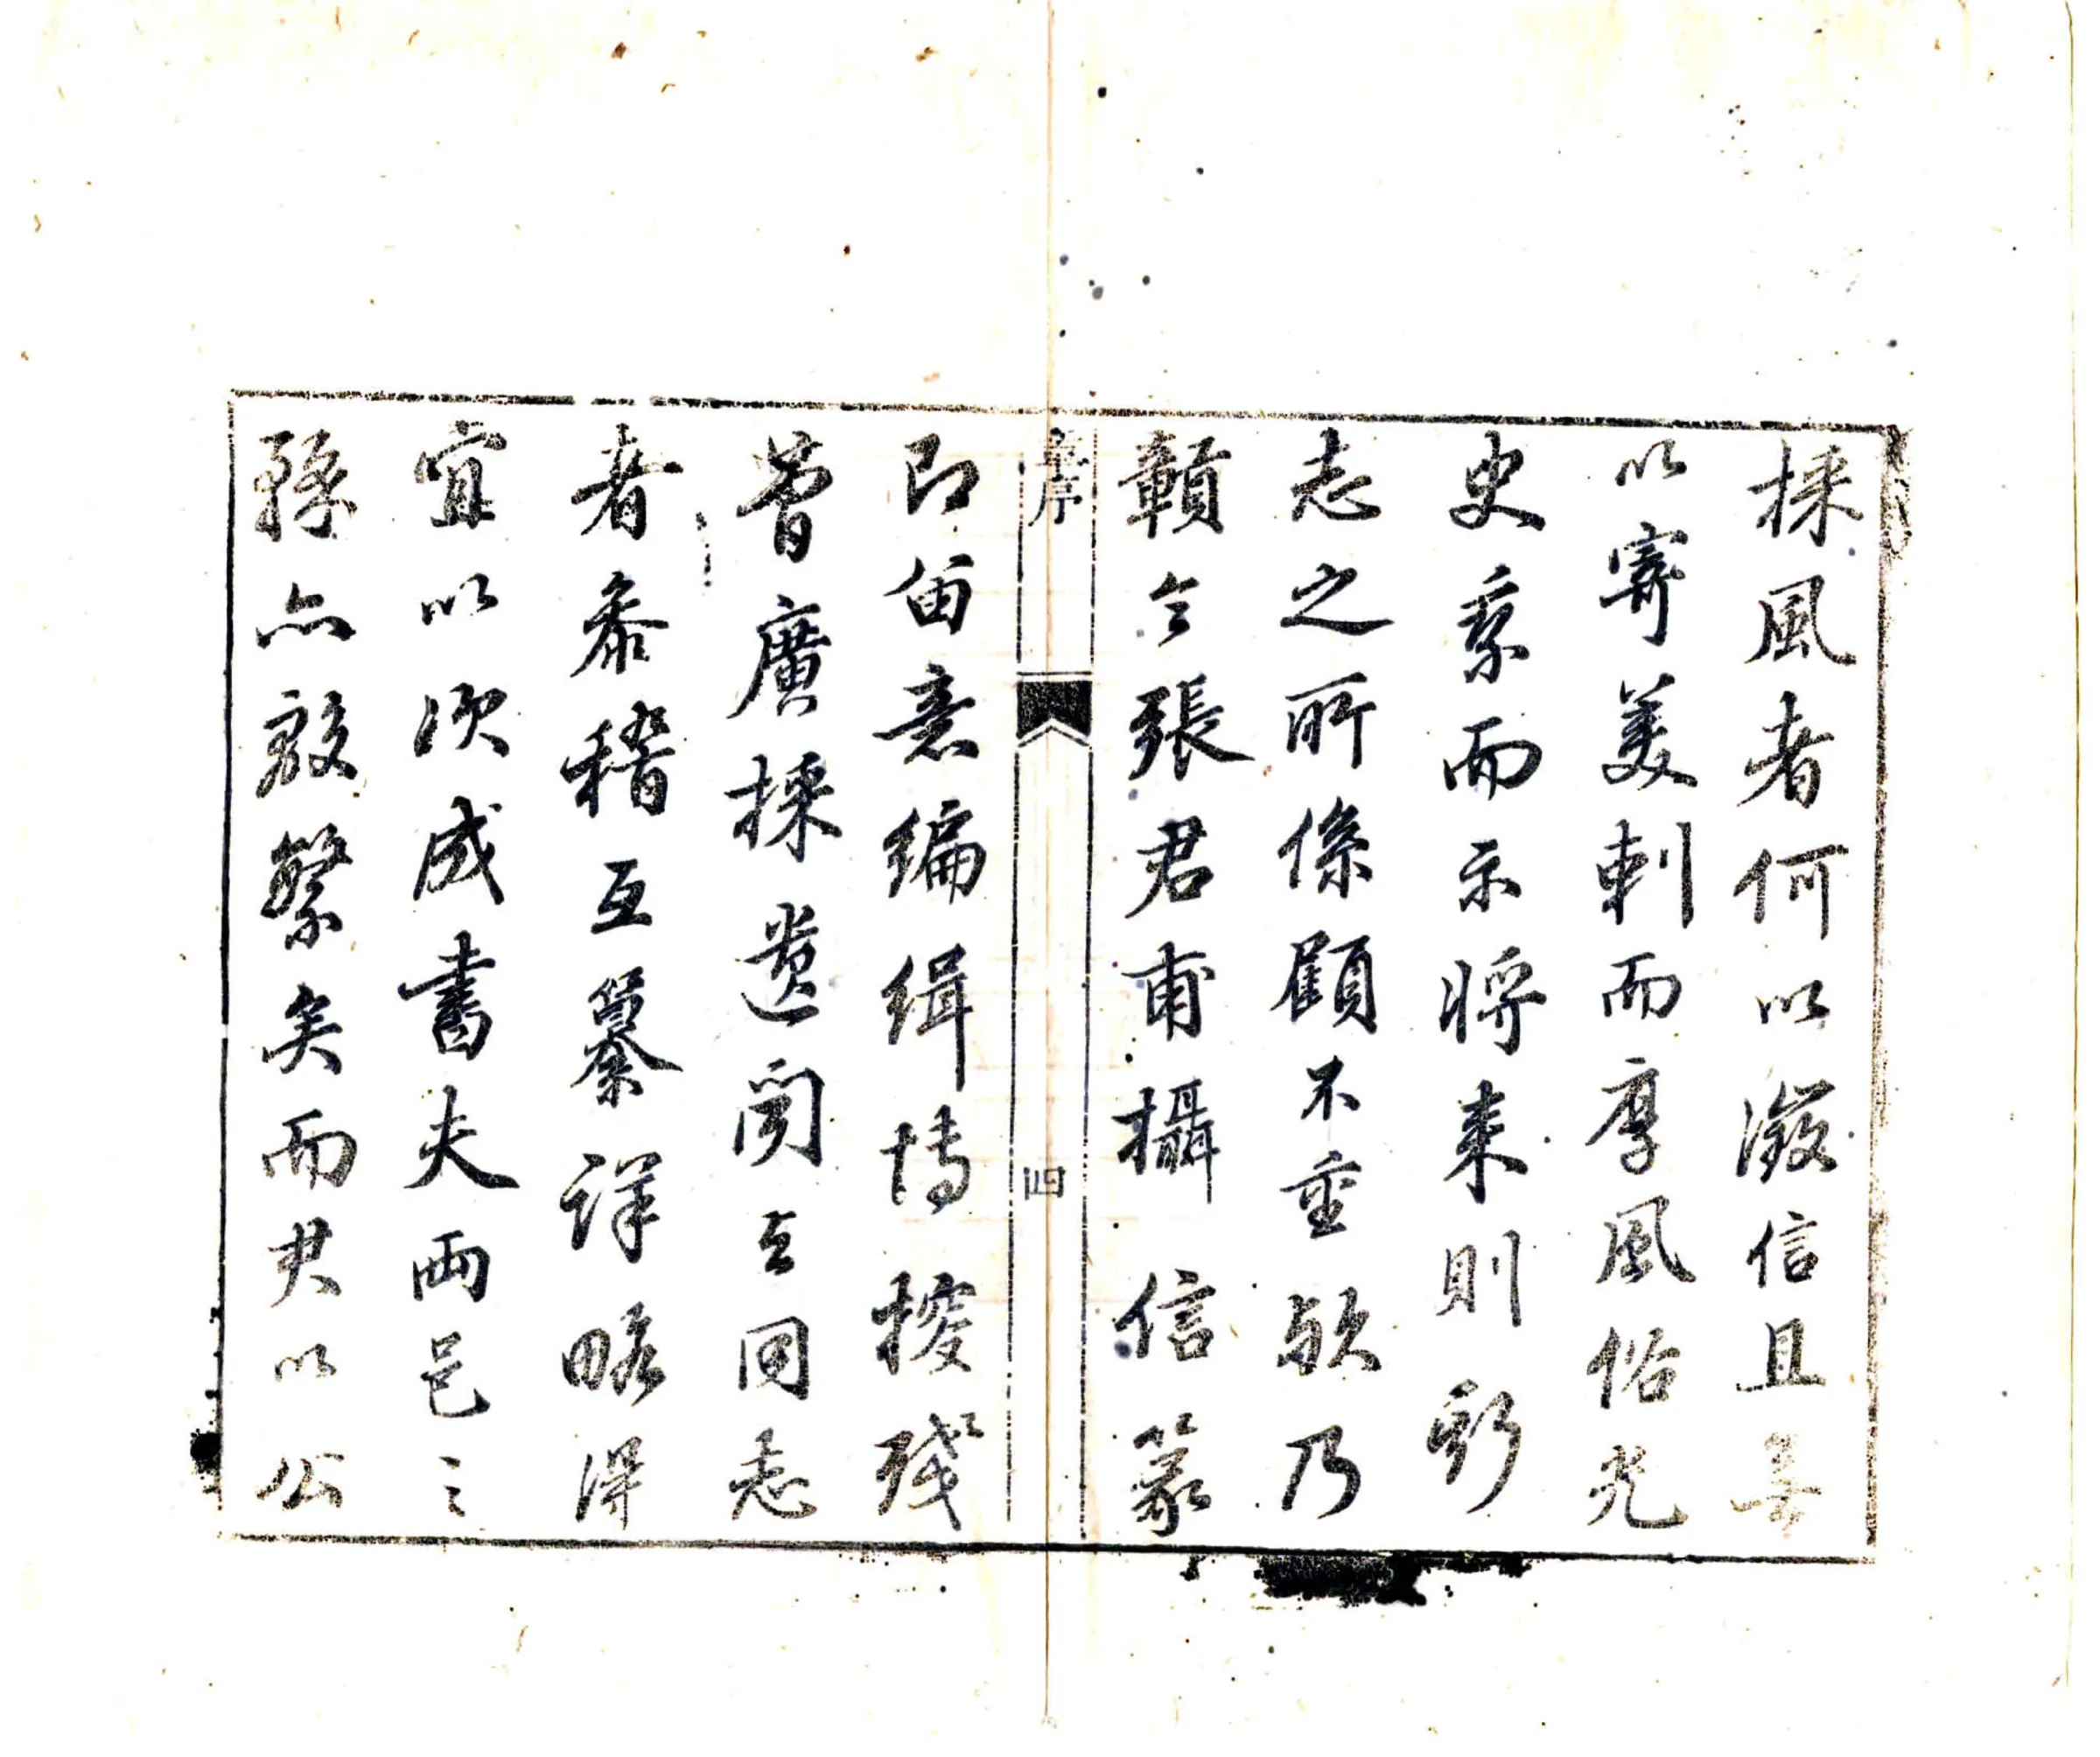 採風者何以徵信且無
以寄美刺而厚風俗光
史系而示將来則
志之所係顧不重歟乃
贛令張君甫攝信篆
序
四
即留意编缉博搜殘
曽廣採遺聞与同志
者叅稽互纂詳略得
宜以次成書夫两邑之
縣亦殷繁矣而尹以公